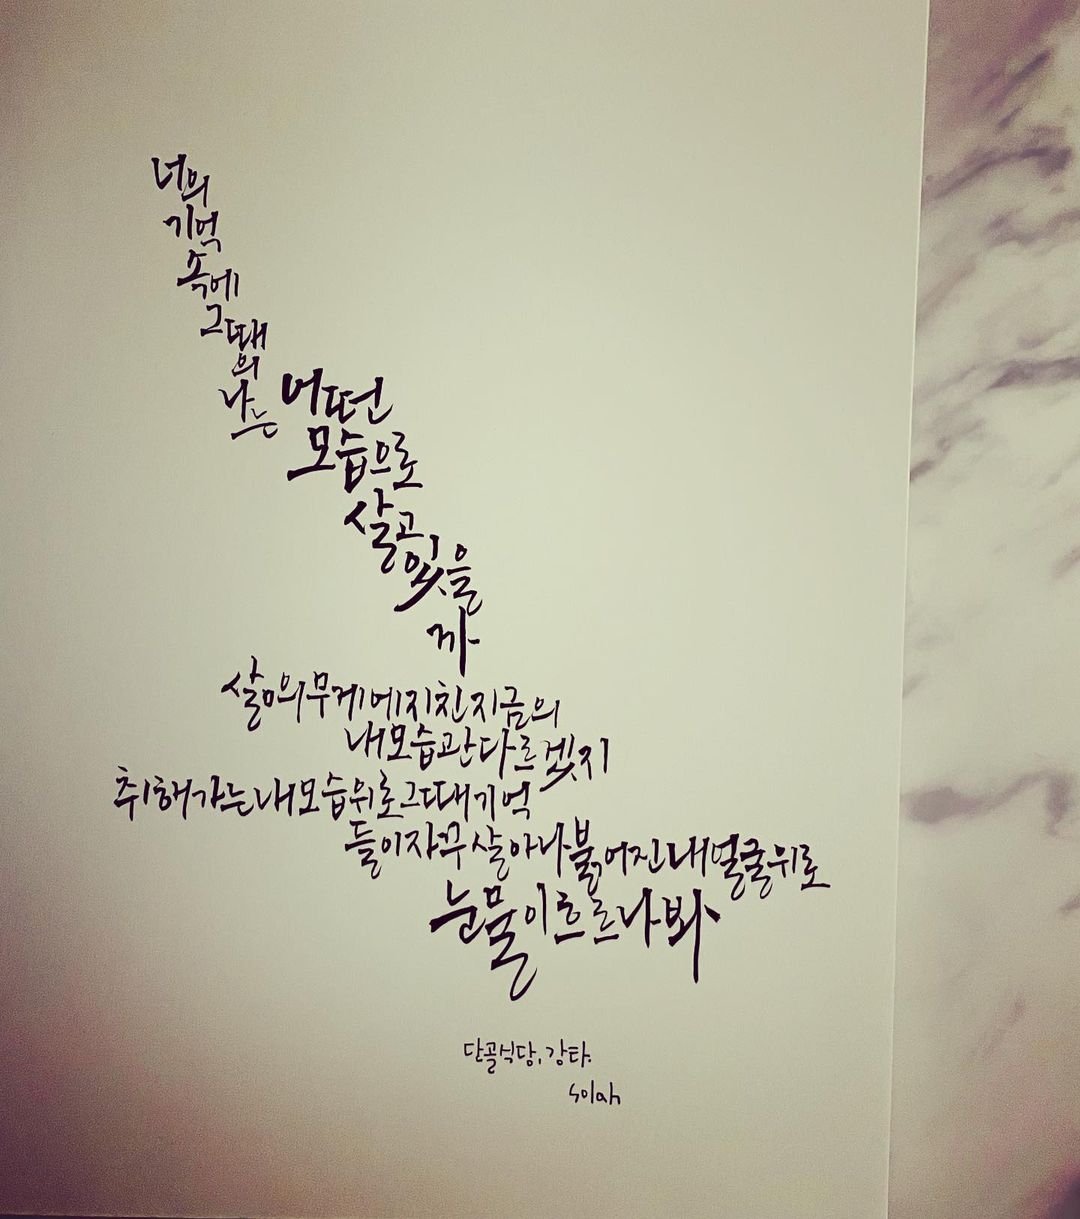 너의
기억
속에
그때
의
나는
어떤
모습으로
살고
있을
까
삶의무게에지친지금의
내모습관다르겠지
취해가는내모습위로그때기억
들이자꾸살아나붉어진내얼굴위로
눈물이흐르나봐
단골식당, 강타.
solah